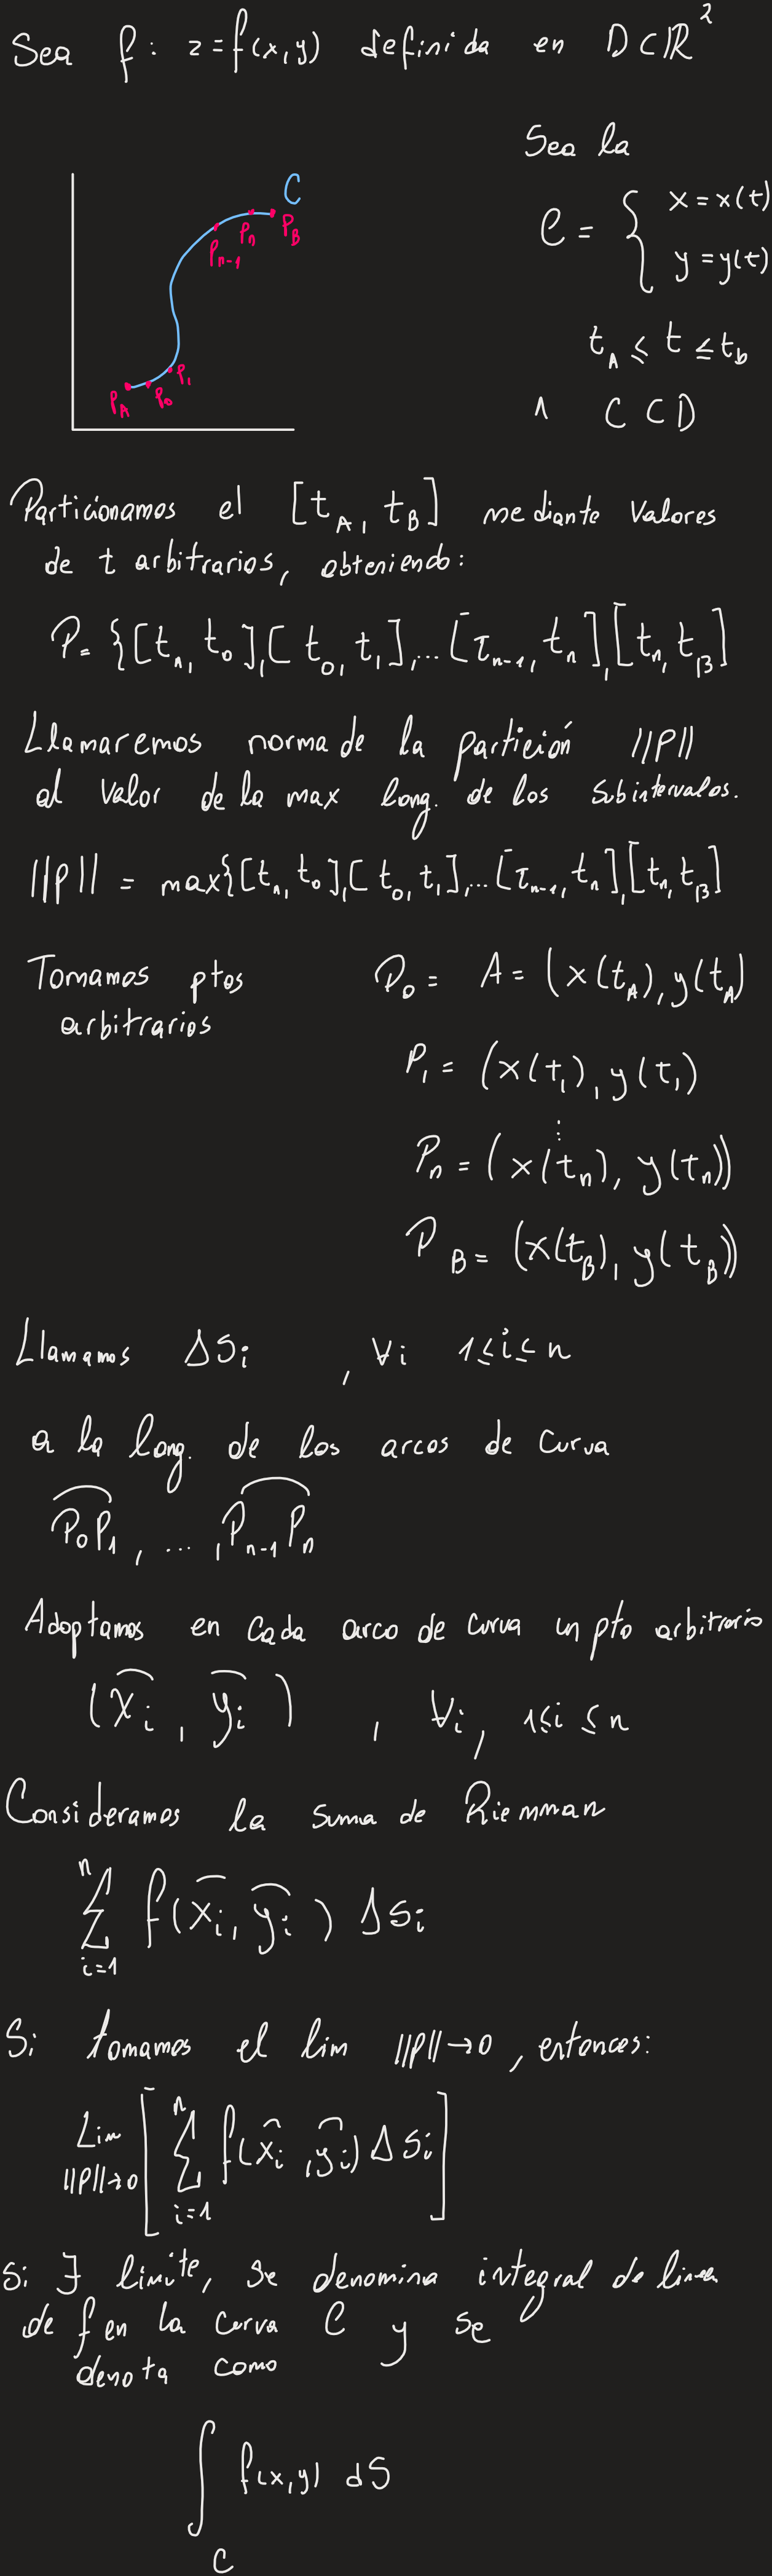 Sea f: z=f(x,y) definida en D⊂ℝ²
Sea la
C = { x=x(t)
y=y(t)
t_A ≤ t ≤ t_b
∧ C ⊂ D
C
P_B
P_n
P_n-1
P_1
P_0
P_A
Particionamos el [t_A, t_B] mediante valores
de t arbitrarios, obteniendo:
P= {[t_A, t_0],[t_0, t_1],...[t_n-1, t_n],[t_n, t_B]
Llamaremos norma de la partición ||P||
al valor de la max long. de los subintervalos.
||P|| = max{[t_A, t_0],[t_0, t_1],...[t_n-1, t_n],[t_n, t_B]
Tomamos ptos
arbitrarios
P_0 = A = (x(t_A), y(t_A)
P_1 = (x(t_1), y(t_1)
⋮
P_n = (x(t_n), y(t_n))
P_B = (x(t_B), y(t_B))
Llamamos ΔS_i , ∀i 1≤i≤n
a la long. de los arcos de curva
P_0P_1, ..., P_n-1 P_n
Adoptamos en cada arco de curva un pto arbitrario
(x̂_i, ŷ_i) , ∀i, 1≤i≤n
Consideramos la suma de Riemman
n
∑ f(x̂_i, ŷ_i) ΔS_i
i=1
Si tomamos el lim ||P||→0, entonces:
Lim ||P||→0 [ ∑ n i=1 f(x̂_i, ŷ_i) ΔS_i ]
Si ∃ limite, se denomina integral de linea
de f en la curva C y se
denota como
∫ f(x,y) dS
C